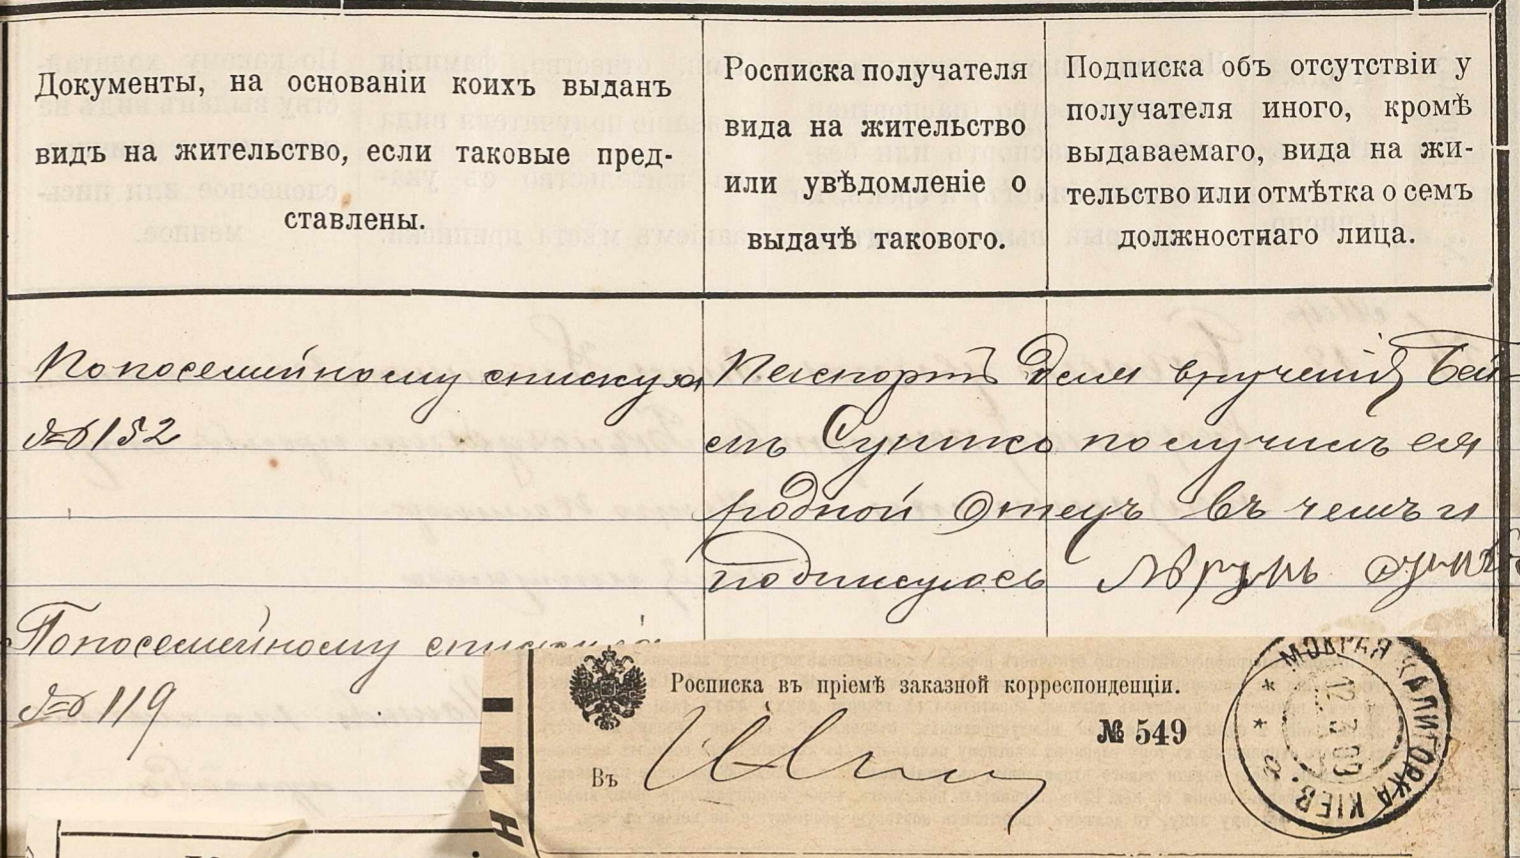 Документы, на основаніи коихъ выданъ
видъ на жительство, если таковые пред-
ставлены.
Росписка получателя
вида на жительство
или увѣдомленіе о
выдачѣ такового.
Подписка объ отсутствіи у
получателя иного, кромѣ
выдаваемаго, вида на жи-
тельство или отмѣтка о семъ
должностнаго лица.
По посемейному списку за
№ 152
Паспортъ для врученія Бей-
съ получилъ ея
родной Отецъ въ чемъ и
подписуюсь
По посемейному списку
№ 119
Росписка въ пріемѣ заказной корреспонденціи.
№ 549
Въ
МОКРАЯ КАЛИГОРКА КІЕВ
12 3 09